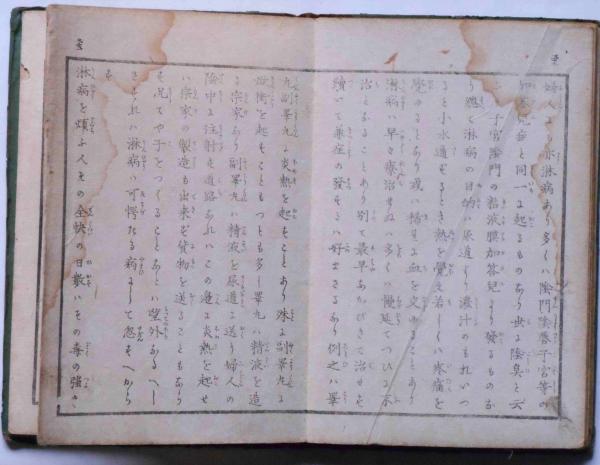 婦人より亦淋病あり多くハ陰門陰唇子宮等の
加答児と同一に起るものあり世に陰臭と云
子宮陰門の粘液膜加答児より発るものあ
り總て淋病の目的ハ尿道より濃汁のもれいつ
ると小水道ずるとき熱を覺え若しくハ疼痛を
覺ゆることあり或ハ稀に血を交ゆることあり
淋病ハ早く療治せねハ多くハ慢延てつひに不
治となることあり別て最早なかびきて治せを
續いて兼症の發するハ好まざるあり例之ハ睾
丸副睾丸に炎熱を起もことあり殊に副睾丸に
焮衝を起もこともつとも多し睾丸ハ精液を造
る宗家あり副睾丸ハ精液を尿道に送り婦人の
陰中に注射も道路あれハこの邊に炎熱を起せ
ハ宗家の製造も出来ぞ貨物を送ることもあり
も况てや子をつくることあとハ望外あるへし
さすれハ淋病ハ可愕たる病にして忽もへから
も
淋病を煩ふ人その全快の日數ハその毒の強さ